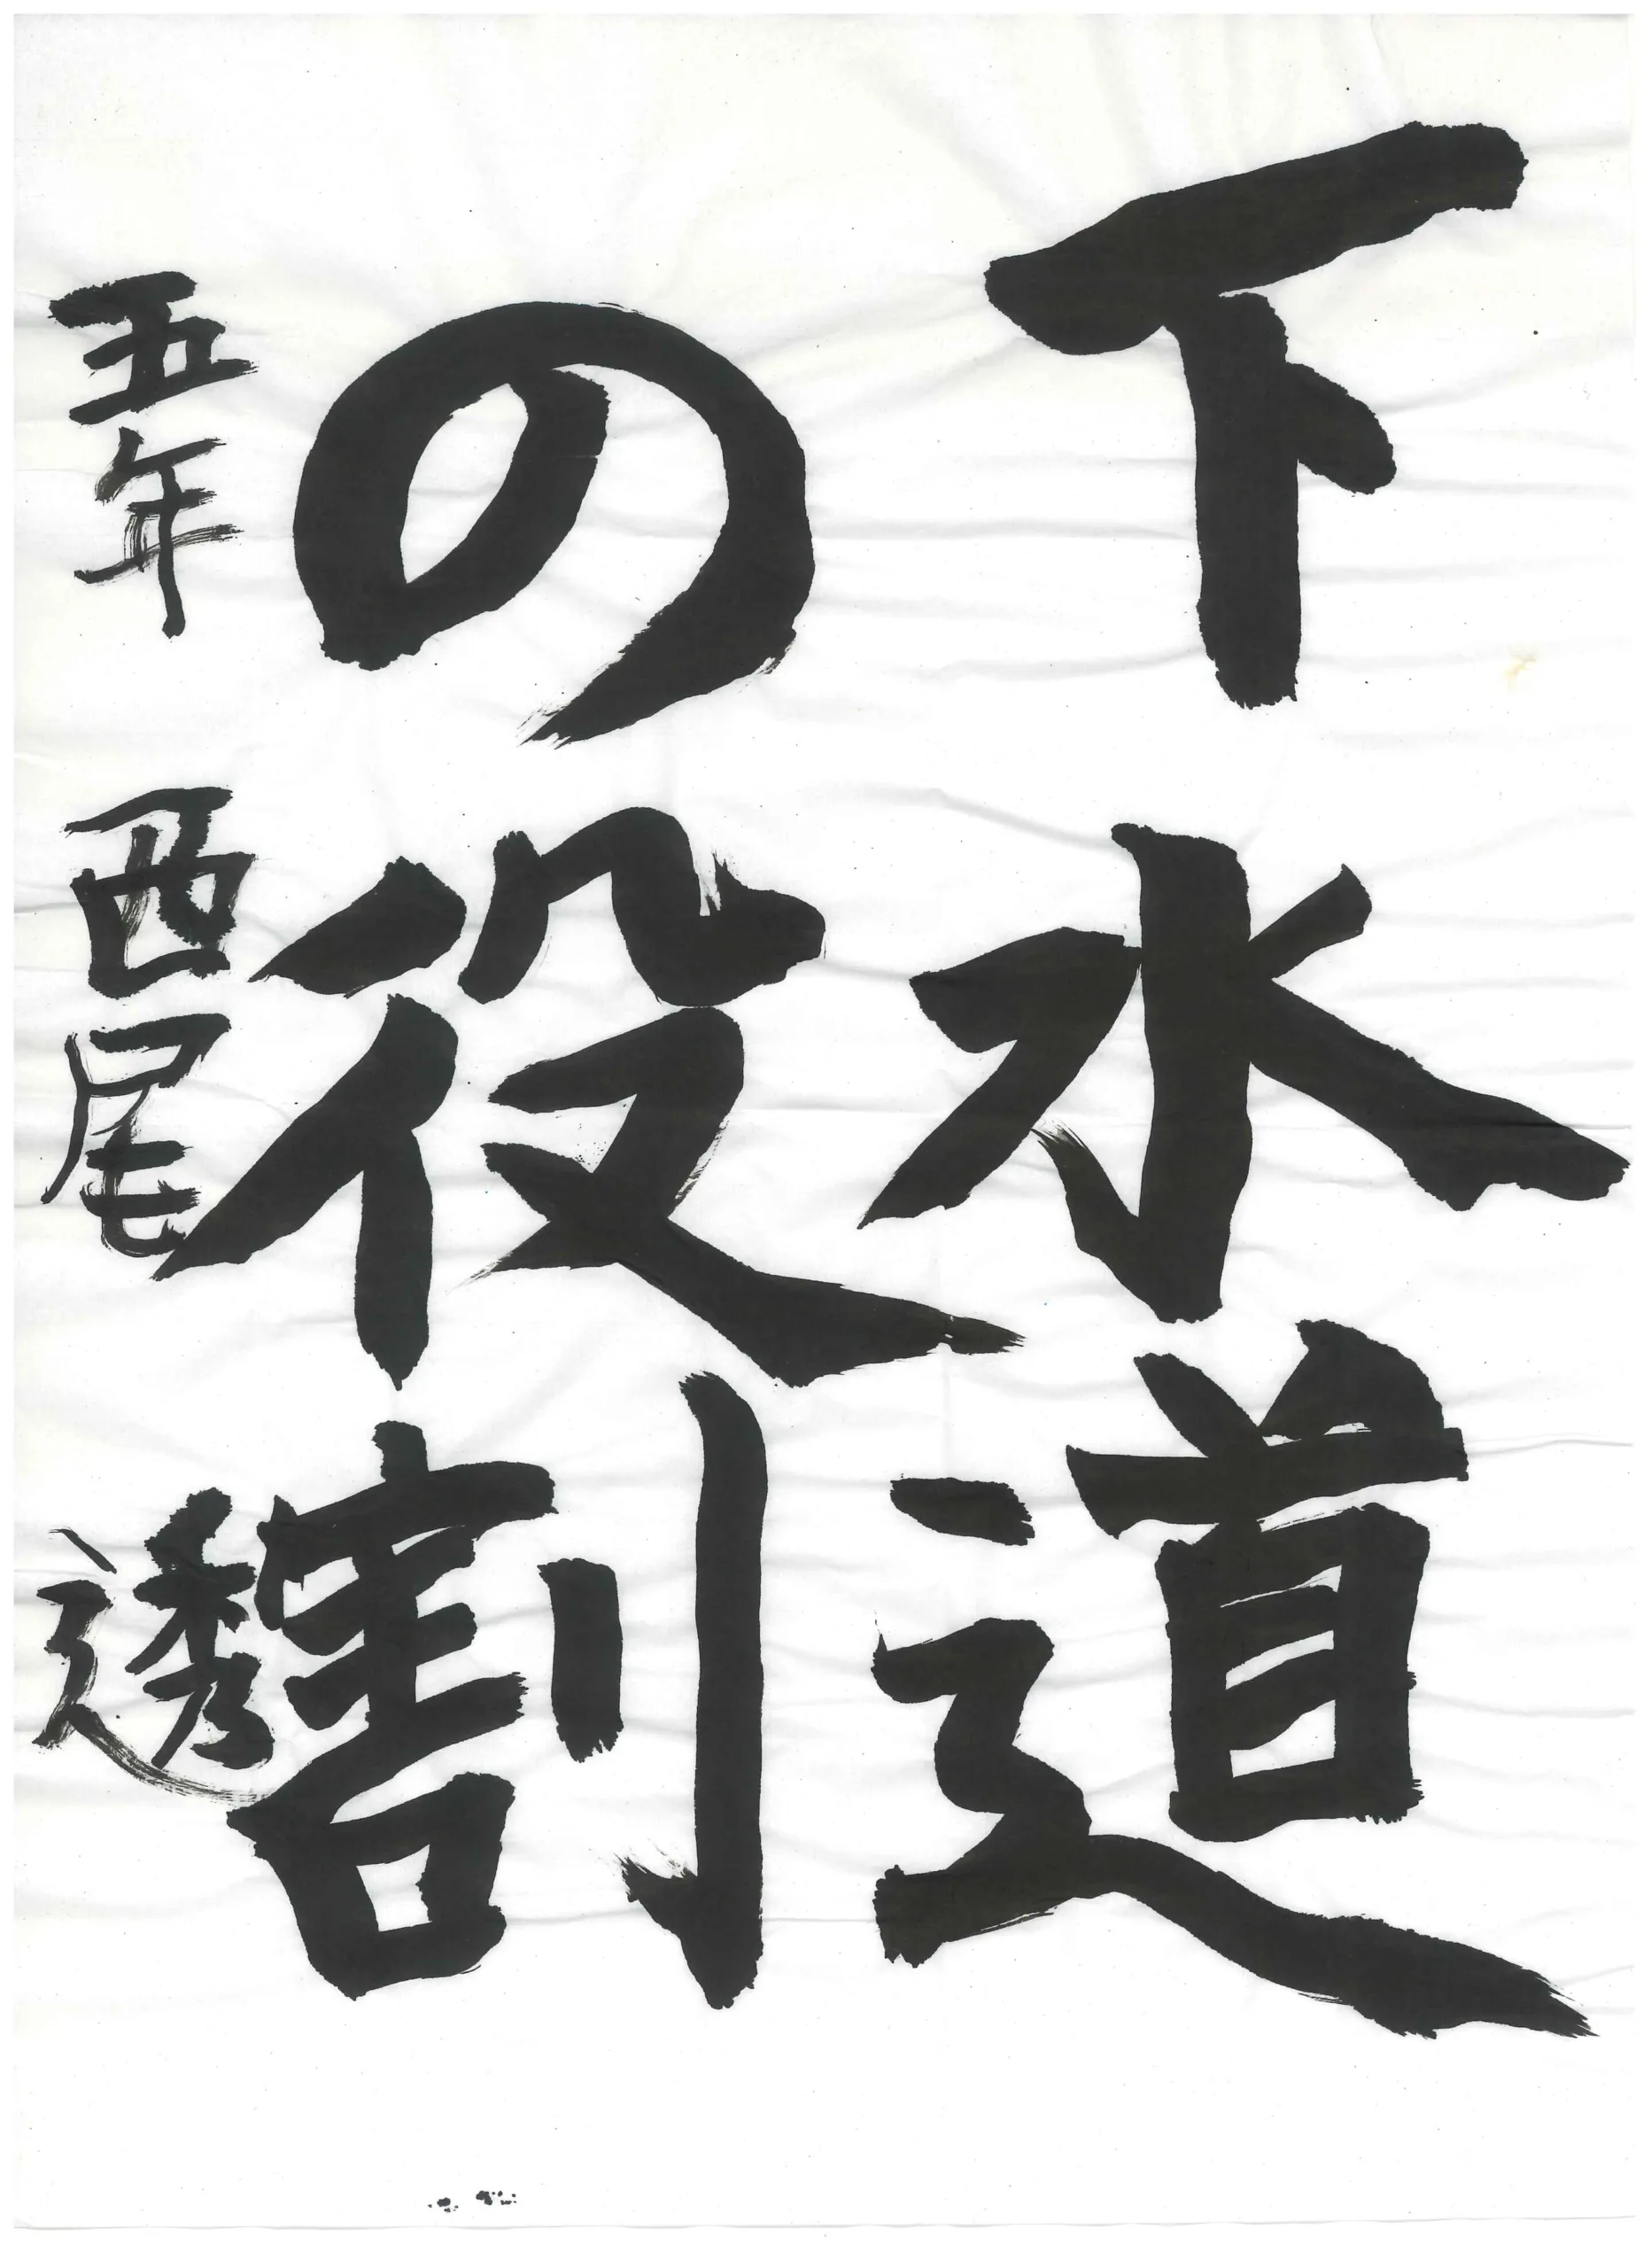 下水道
の役割
五年 西尾 透